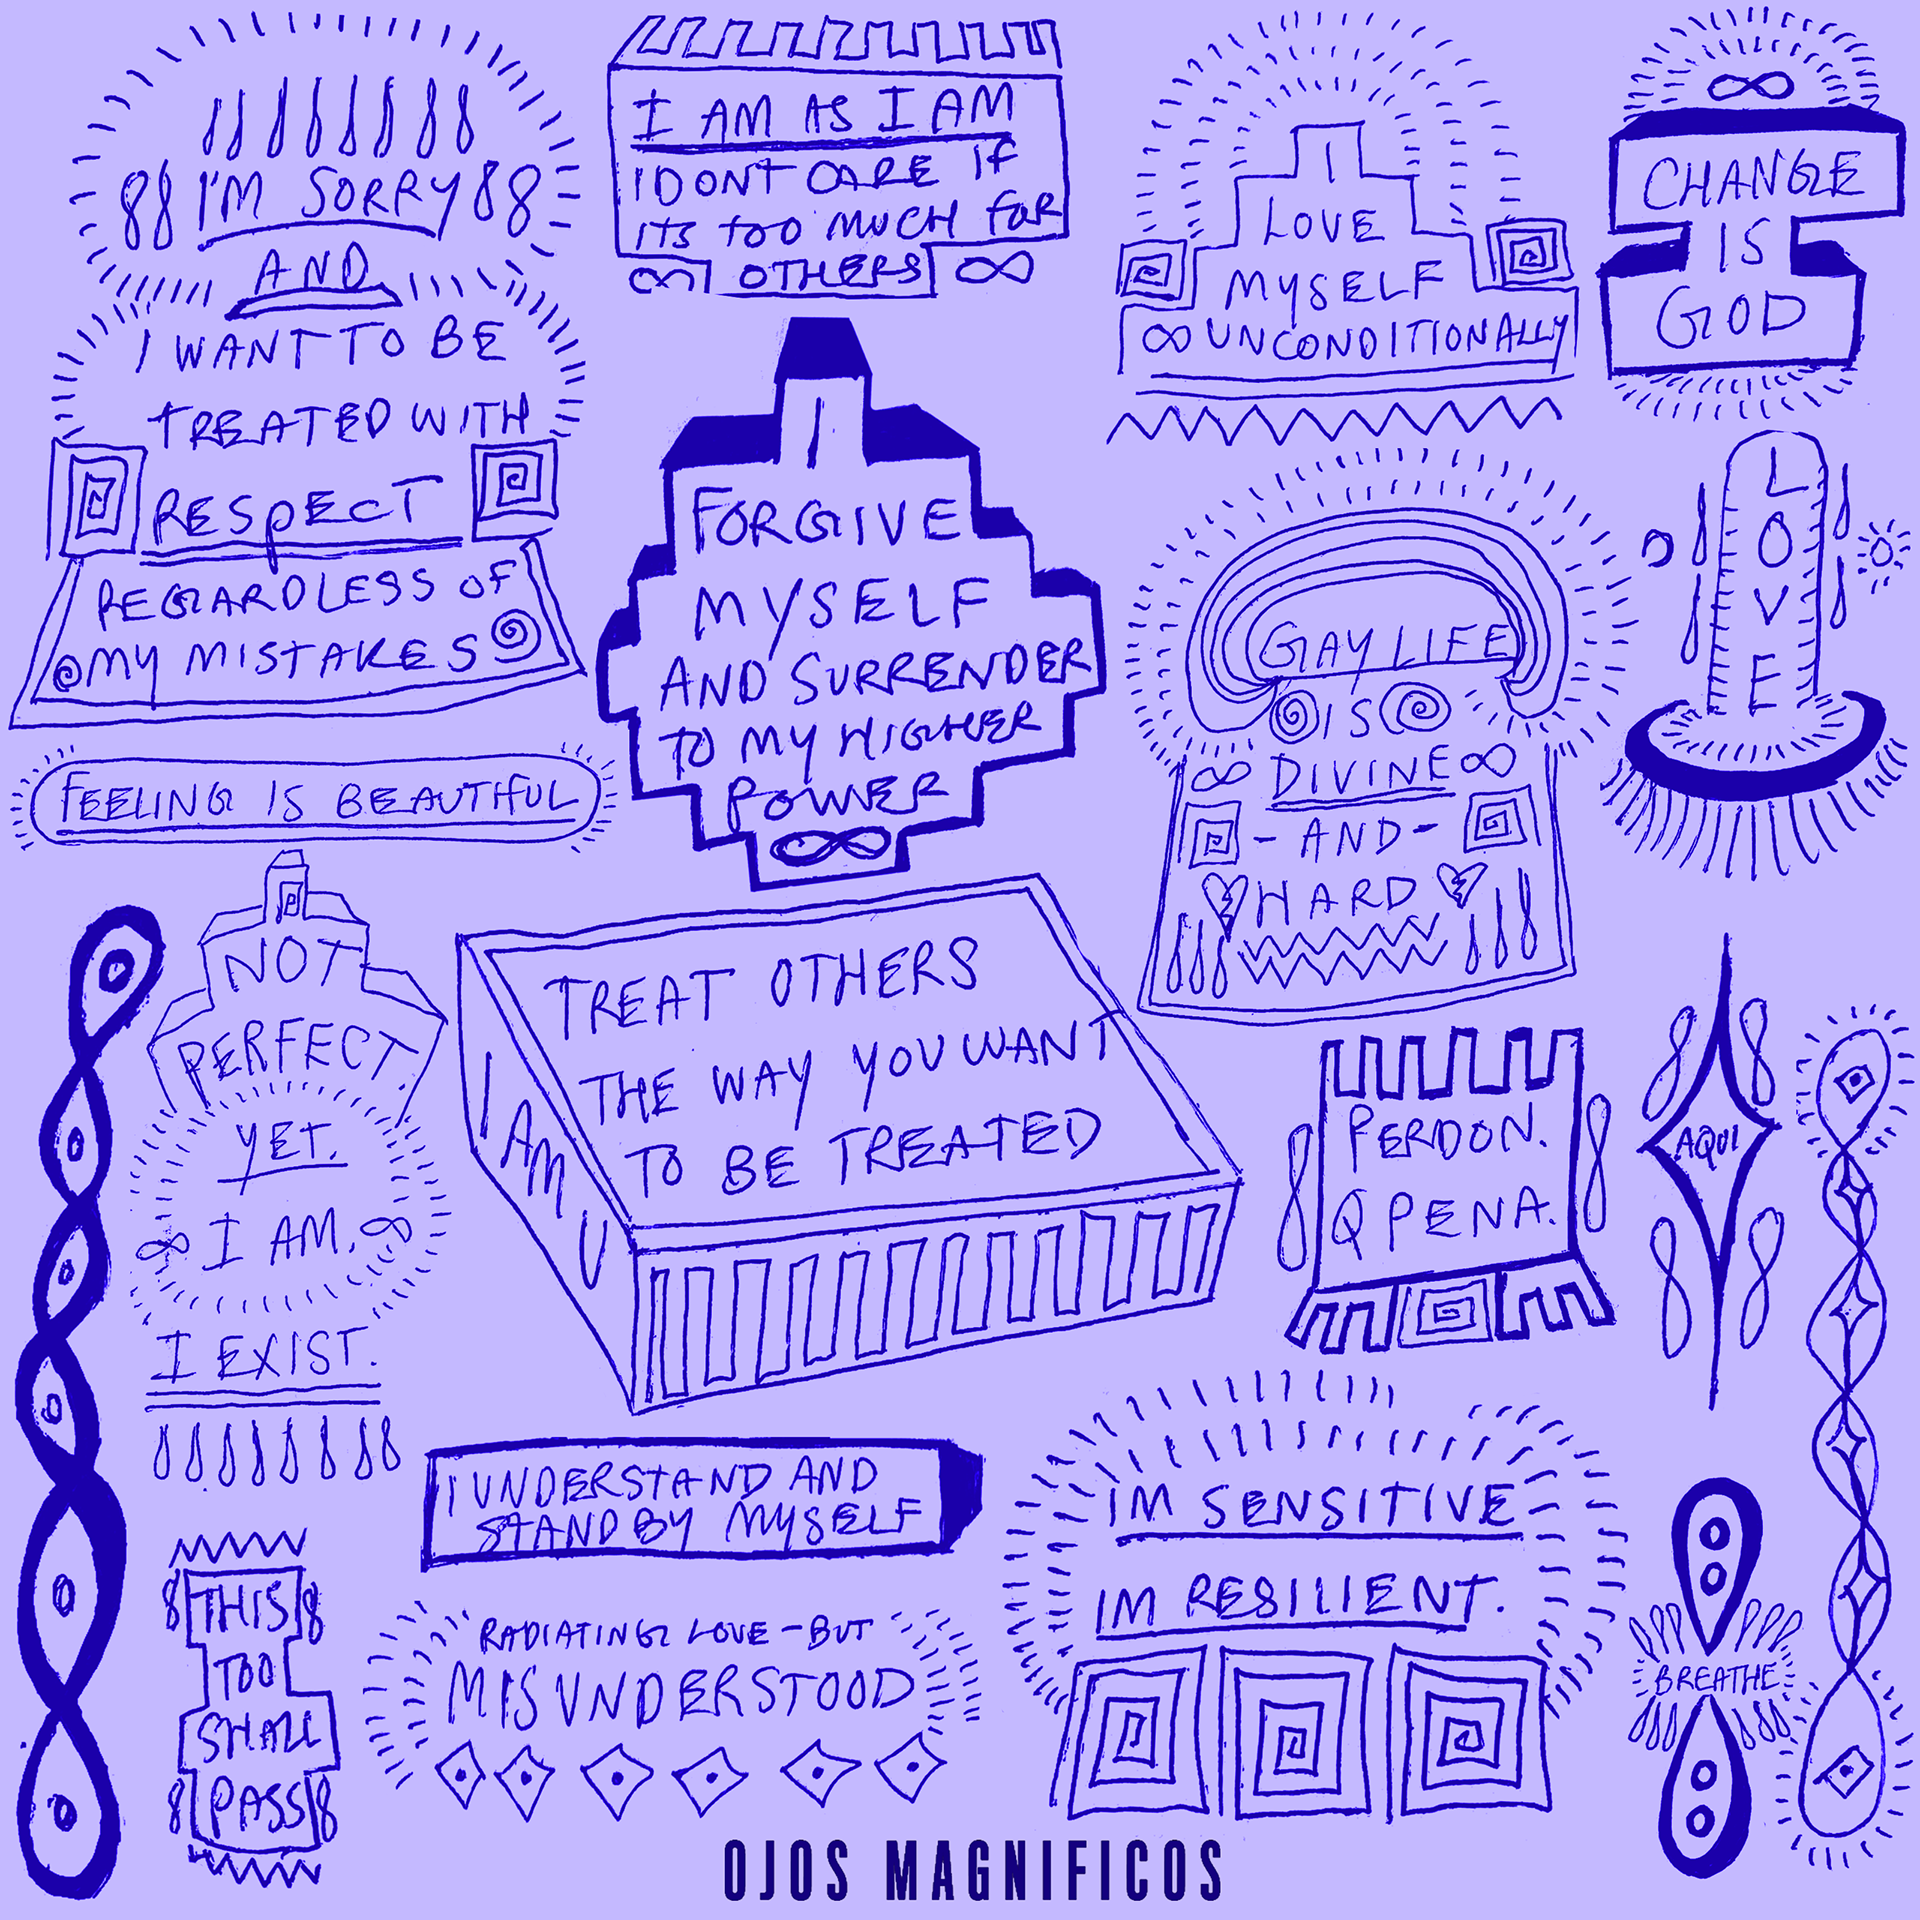 I'M SORRY
AND
I WANT TO BE
TREATED WITH
RESPECT
REGARDLESS OF
MY MISTAKES
I AM AS I AM
I DONT CARE IF
ITS TOO MUCH FOR
OTHERS
I
LOVE
MYSELF
UNCONDITIONALLY
CHANGE
IS
GOD
I
FORGIVE
MYSELF
AND SURRENDER
TO MY HIGHER
POWER
GAY LIFE
IS
DIVINE
- AND -
HARD
L
O
V
E
FEELING IS BEAUTIFUL
NOT
PERFECT.
YET.
I AM.
I EXIST.
TREAT OTHERS
THE WAY YOU WANT
TO BE TREATED
I AM U
PERDON.
Q PENA.
AQUI
I UNDERSTAND AND
STAND BY MYSELF
IM SENSITIVE
IM RESILIENT.
THIS
TOO
SHALL
PASS
RADIATING LOVE - BUT
MISUNDERSTOOD
BREATHE
OJOS MAGNIFICOS